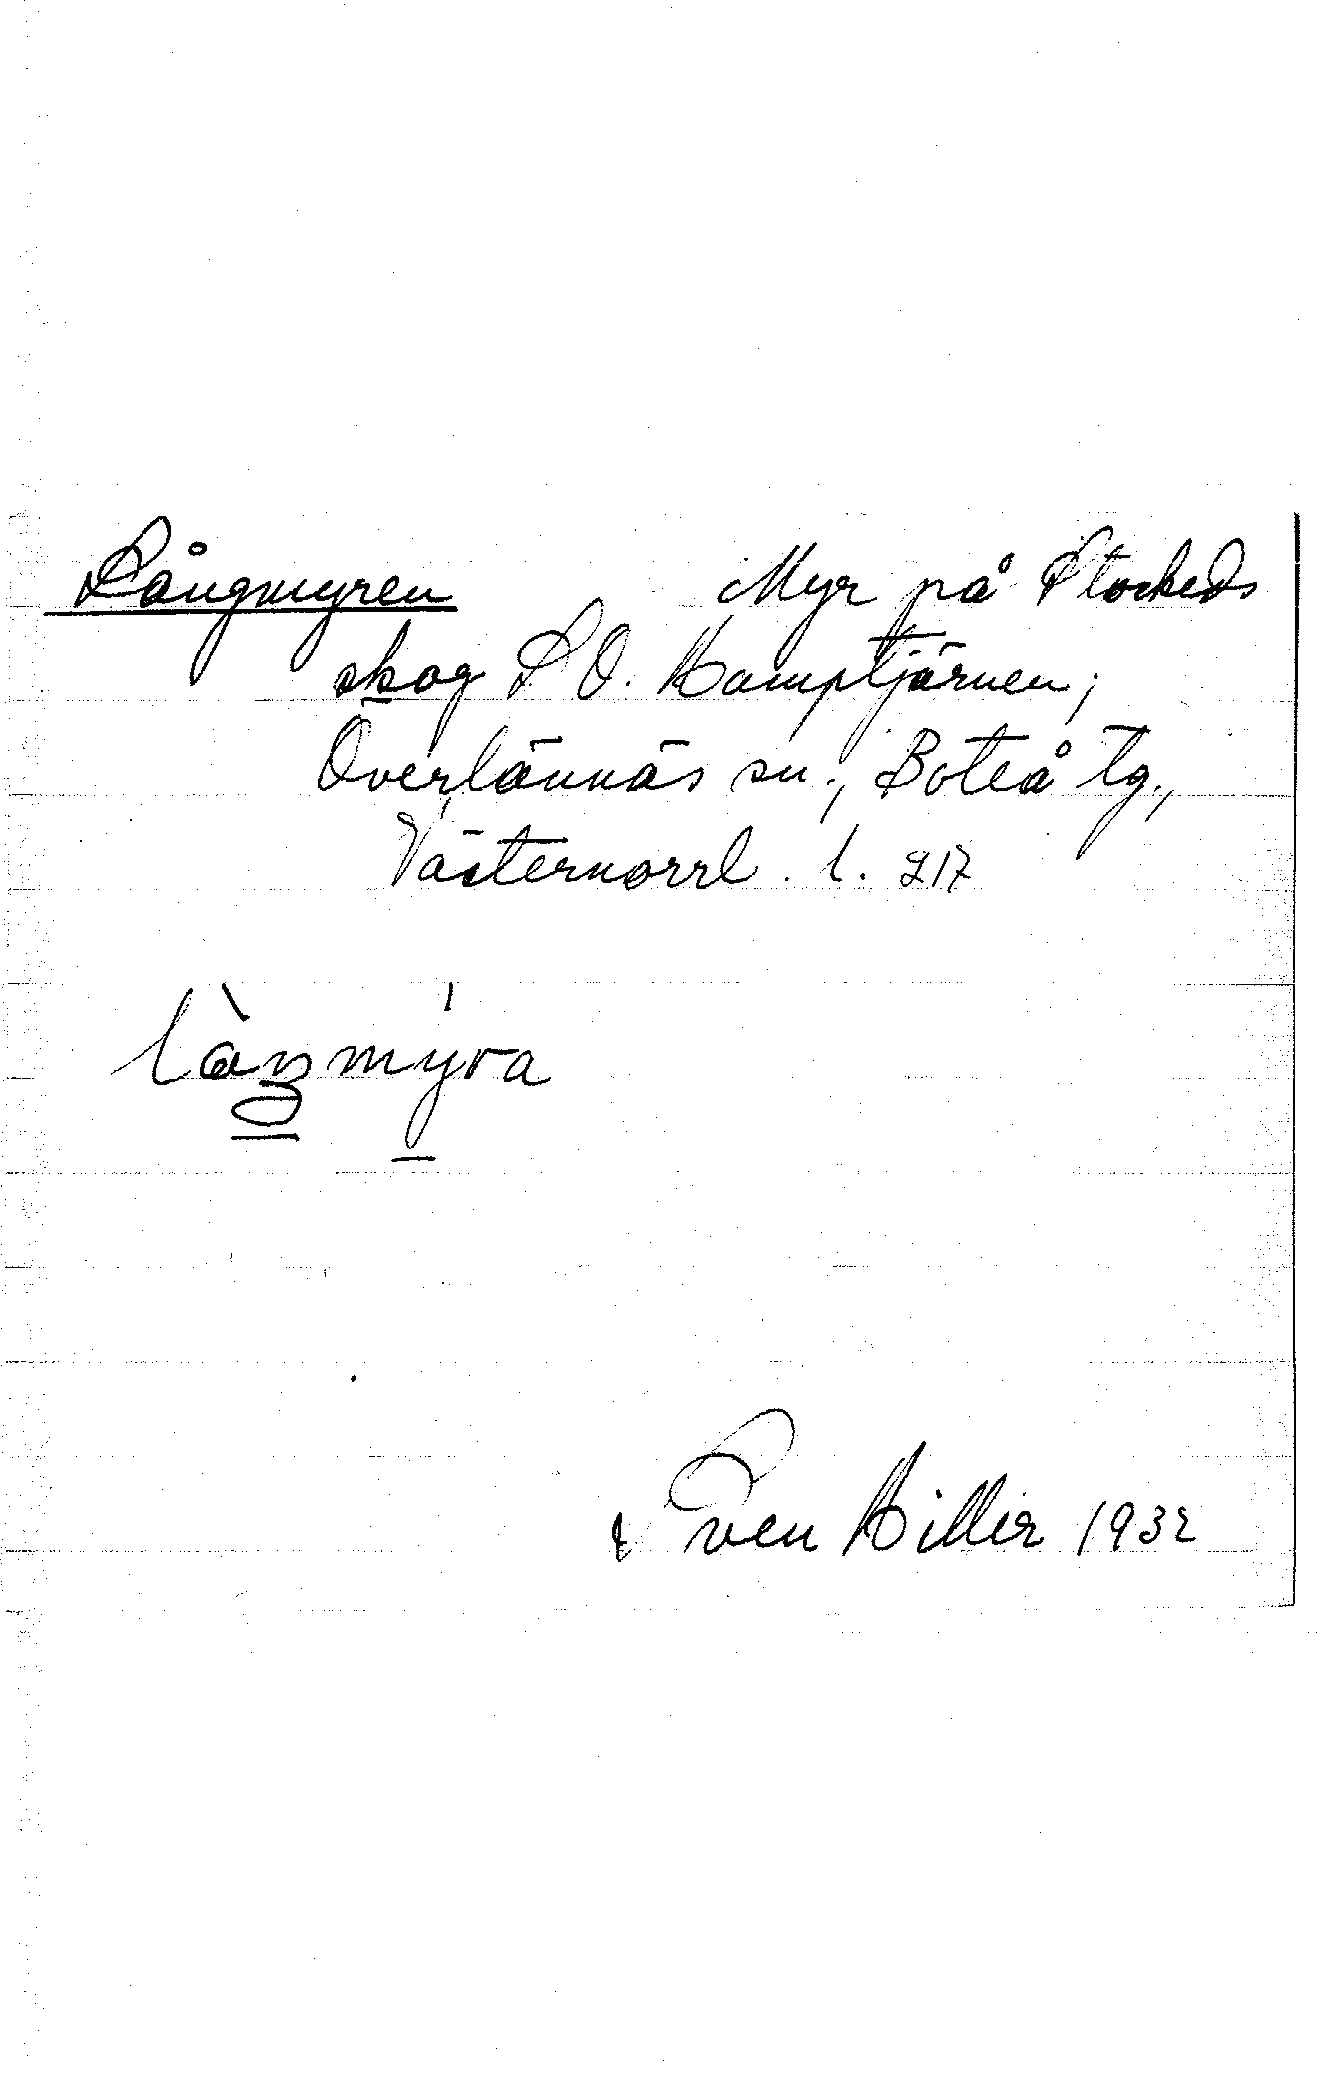 Långmyren Myr på Stockeds
skog S O. Hamptjärnen,
Överlännäs sn., Boteå tg.,
Västernorrl. l. 217
làŋmýra
Sven Hillir 1932